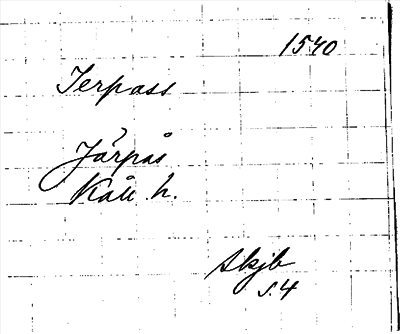 1540
Jerpass
Järpås
Kåll h.
Skjb
s. 4